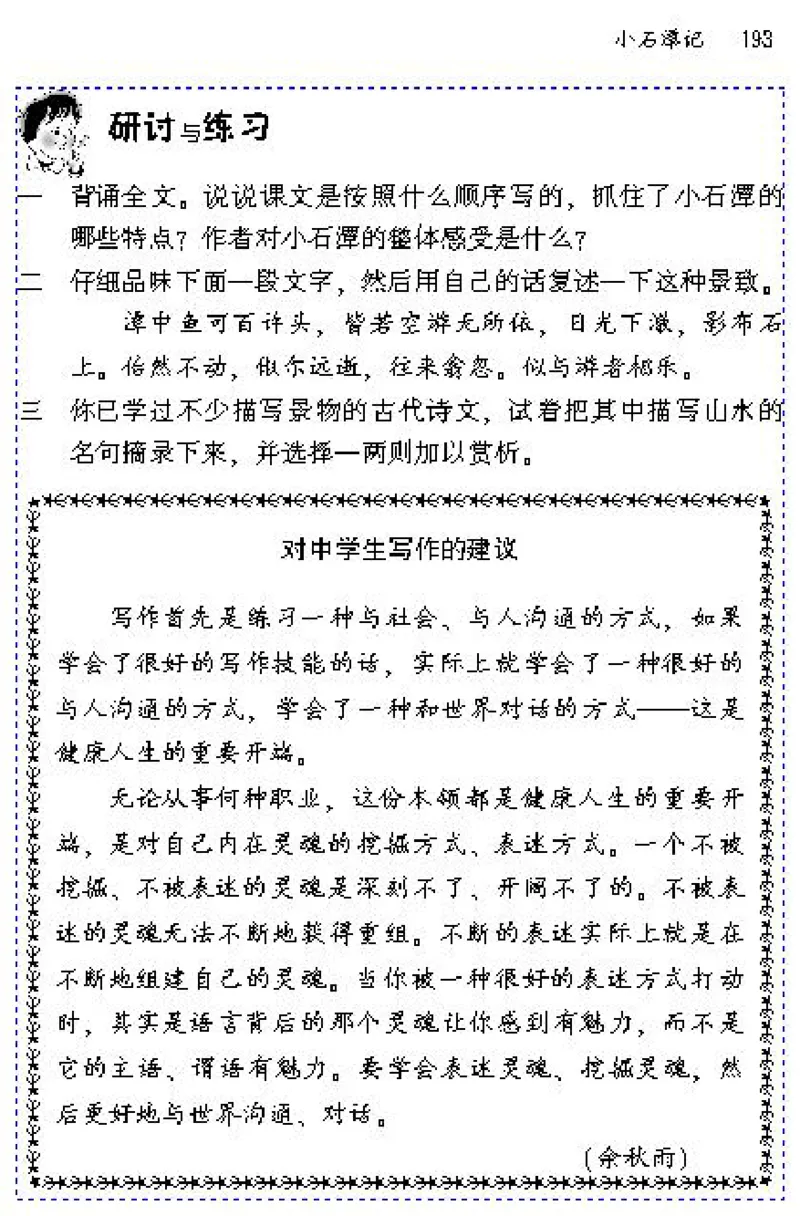 小石潭记 193
研讨与练习
一 背诵全文。说说课文是按照什么顺序写的，抓住了小石潭的
哪些特点？作者对小石潭的整体感受是什么？
二 仔细品味下面一段文字，然后用自己的话复述一下这种景致。
潭中鱼可百许头，皆若空游无所依，日光下澈，影布石
上。佁然不动，俶尔远逝，往来翕忽。似与游者相乐。
三 你已学过不少描写景物的古代诗文，试着把其中描写山水的
名句摘录下来，并选择一两则加以赏析。
对中学生写作的建议
写作首先是练习一种与社会、与人沟通的方式，如果
学会了很好的写作技能的话，实际上就学会了一种很好的
与人沟通的方式，学会了一种和世界对话的方式——这是
健康人生的重要开端。
无论从事何种职业，这份本领都是健康人生的重要开
端，是对自己内在灵魂的挖掘方式、表述方式。一个不被
挖掘、不被表述的灵魂是深刻不了、开阔不了的。不被表
述的灵魂无法不断地获得重组。不断的表述实际上就是在
不断地组建自己的灵魂。当你被一种很好的表述方式打动
时，其实是语言背后的那个灵魂让你感到有魅力，而不是
它的主语、谓语有魅力。要学会表述灵魂、挖掘灵魂，然
后更好地与世界沟通、对话。
（余秋雨）